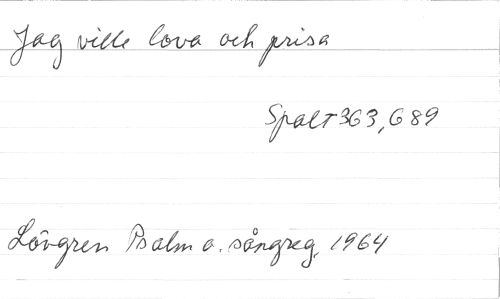 Jag ville lova och prisa
Spalt 363, 689
Lövgren Psalm o. sångreg. 1964